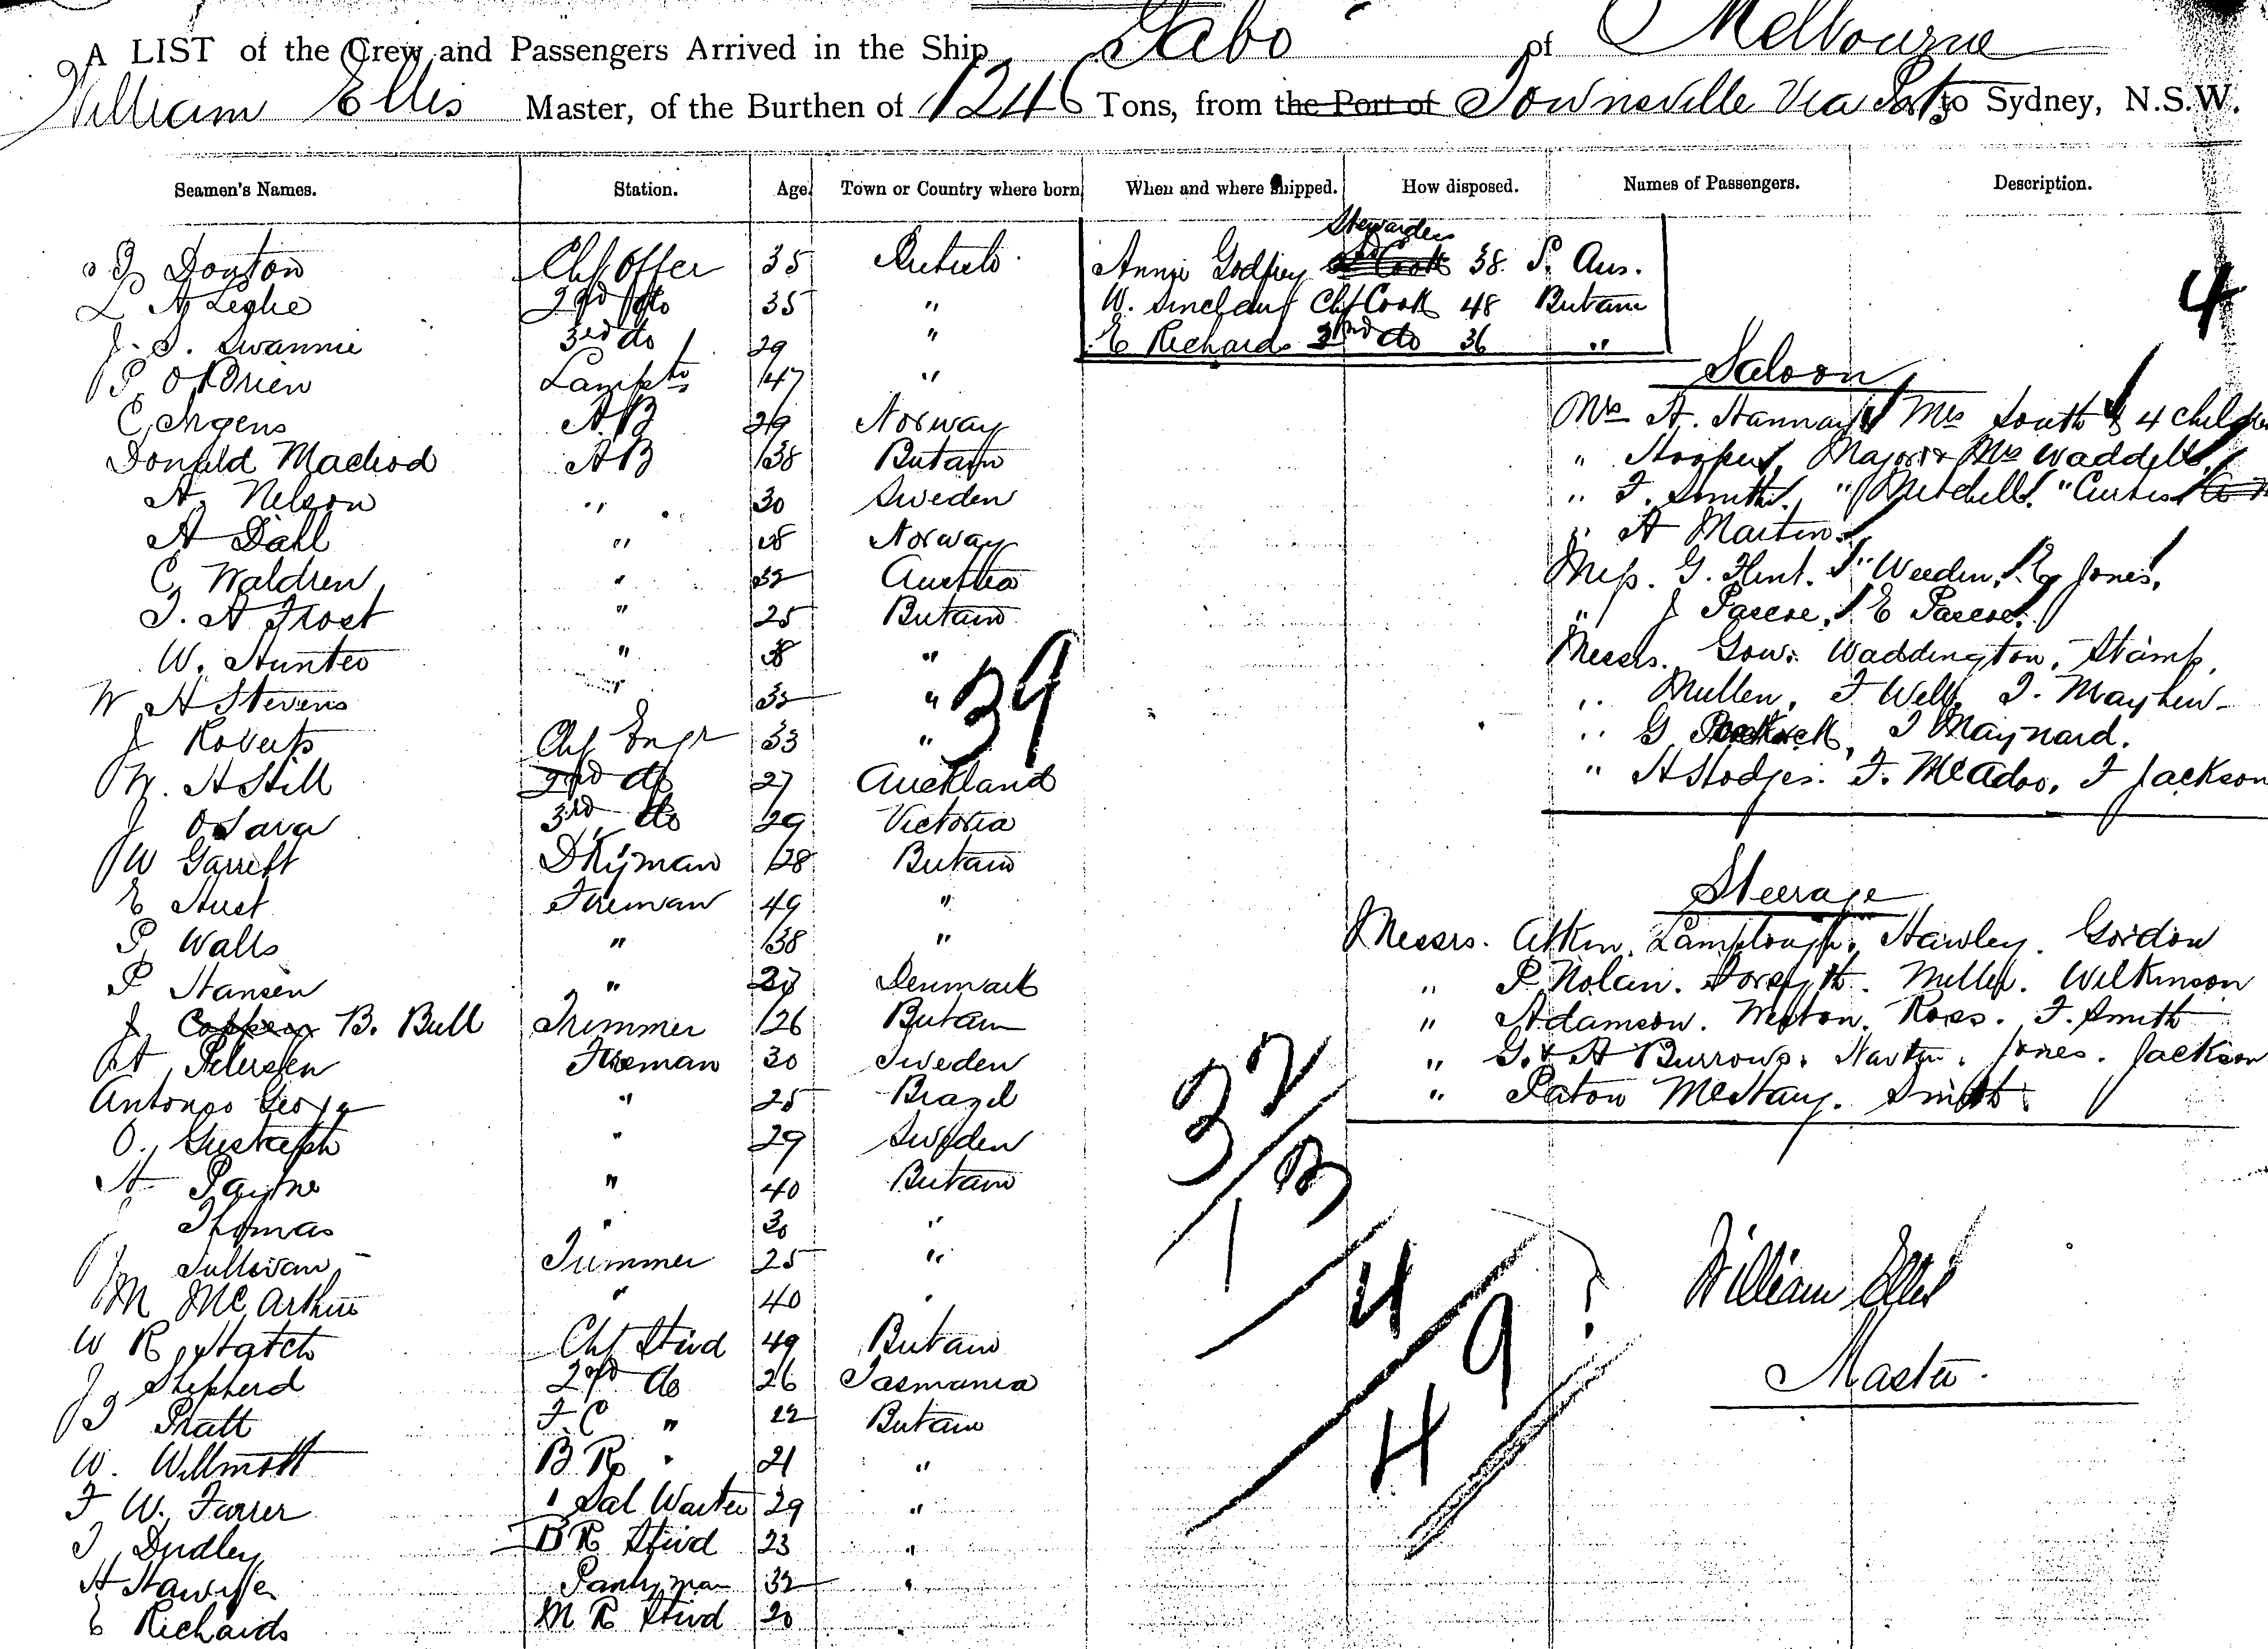 A LIST of the Crew and Passengers Arrived in the Ship Gabo of Melbourne
William Ellis Master, of the Burthen of 1246 Tons, from the Port of Townsville Via Ports to Sydney, N.S.W.
Seamen's Names. Station. Age. Town or Country where born When and where shipped. How disposed. Names of Passengers. Description.
Stewardess
Annie Godfrey 2nd Cook 38 S. Aus.
W. Sinclair Chf Cook 48 Britain
E Richards 2nd do 36 "
4
J Douton Chf Offcer 35 British
L A Leslie 2nd do 35 "
J. S. Swannie 3rd do 29 "
P. O'Brien Lamps 47 "
C Irgens A.B 29 Norway
Donald Macleod AB 38 Britain
A. Nelson " 30 Sweden
A Dahl " 28 Norway
C, Waldren " 32 Austria
T. A Frost " 25 Britain
W. Hunter " 38 "
W H Stevens " 35 "
39
J Roberts Chf Engr 33 "
W. H Hill 2nd do 27 Auckland
J O'Hara 3rd do 29 Victoria
W Garrett Dkyman 28 Britain
E Hust Fireman 49 "
P, Walls " 38 "
P Hansen " 27 Denmark
J. B. Bull Trimmer 26 Britain
A, Petersen Fireman 30 Sweden
Antonso George " 25 Brazil
O. Gustafph " 29 Sweden
A Payne " 40 Britain
Thomas " 30 "
Sullivan Trimmer 25 "
M McArthur " 40 "
W R Hatch Chf Stwd 49 Britain
J Shepherd 2nd do 26 Tasmania
J Pratt F.C " 22 Britain
W. Willmott B R " 21 "
F W. Farrer Sal Waiter 29 "
J Dudley B R Stwd 23 "
H Pantryman 32 "
E Richards M R Stwd 20
Saloon
Mrs A. Hannay, Mrs South & 4 children
" Hooper, Major & Mrs Waddell,
" F. Smith, " Mitchell. " Curtis
" A Martin.
Miss. G. Flint. " Weedin, E, Jones,
" J Pascoe, E Pascoe.
Messrs. Gow. Waddington, Stamp.
" Mullen, F Well, J. Mayhew
" G J Maynard.
" H Hodges. F. McAdoo, F Jackson
Steerage
Messrs. Atkin, Lamplough, Hawley. Gordon
" P. Nolan. Forsyth. Miller. Wilkinson
" Adamson. Weston. Ross. F. Smith
" G. & A Burrows. Jones. Jackson
" Paton McStay. Smith.
32
13
4
9
4
William Ellis
Master.